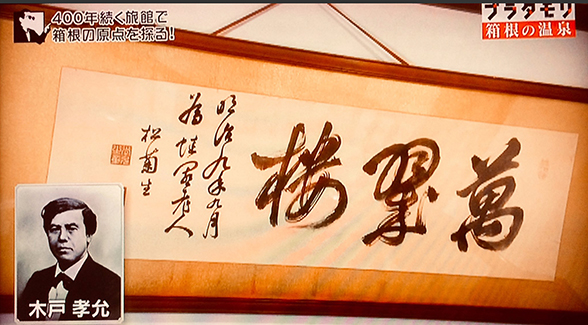 400年続く旅館で
箱根の原点を探る！
ブラタモリ
箱根の温泉
萬翠楼
明治九年九月
松菊生
木戸 孝允